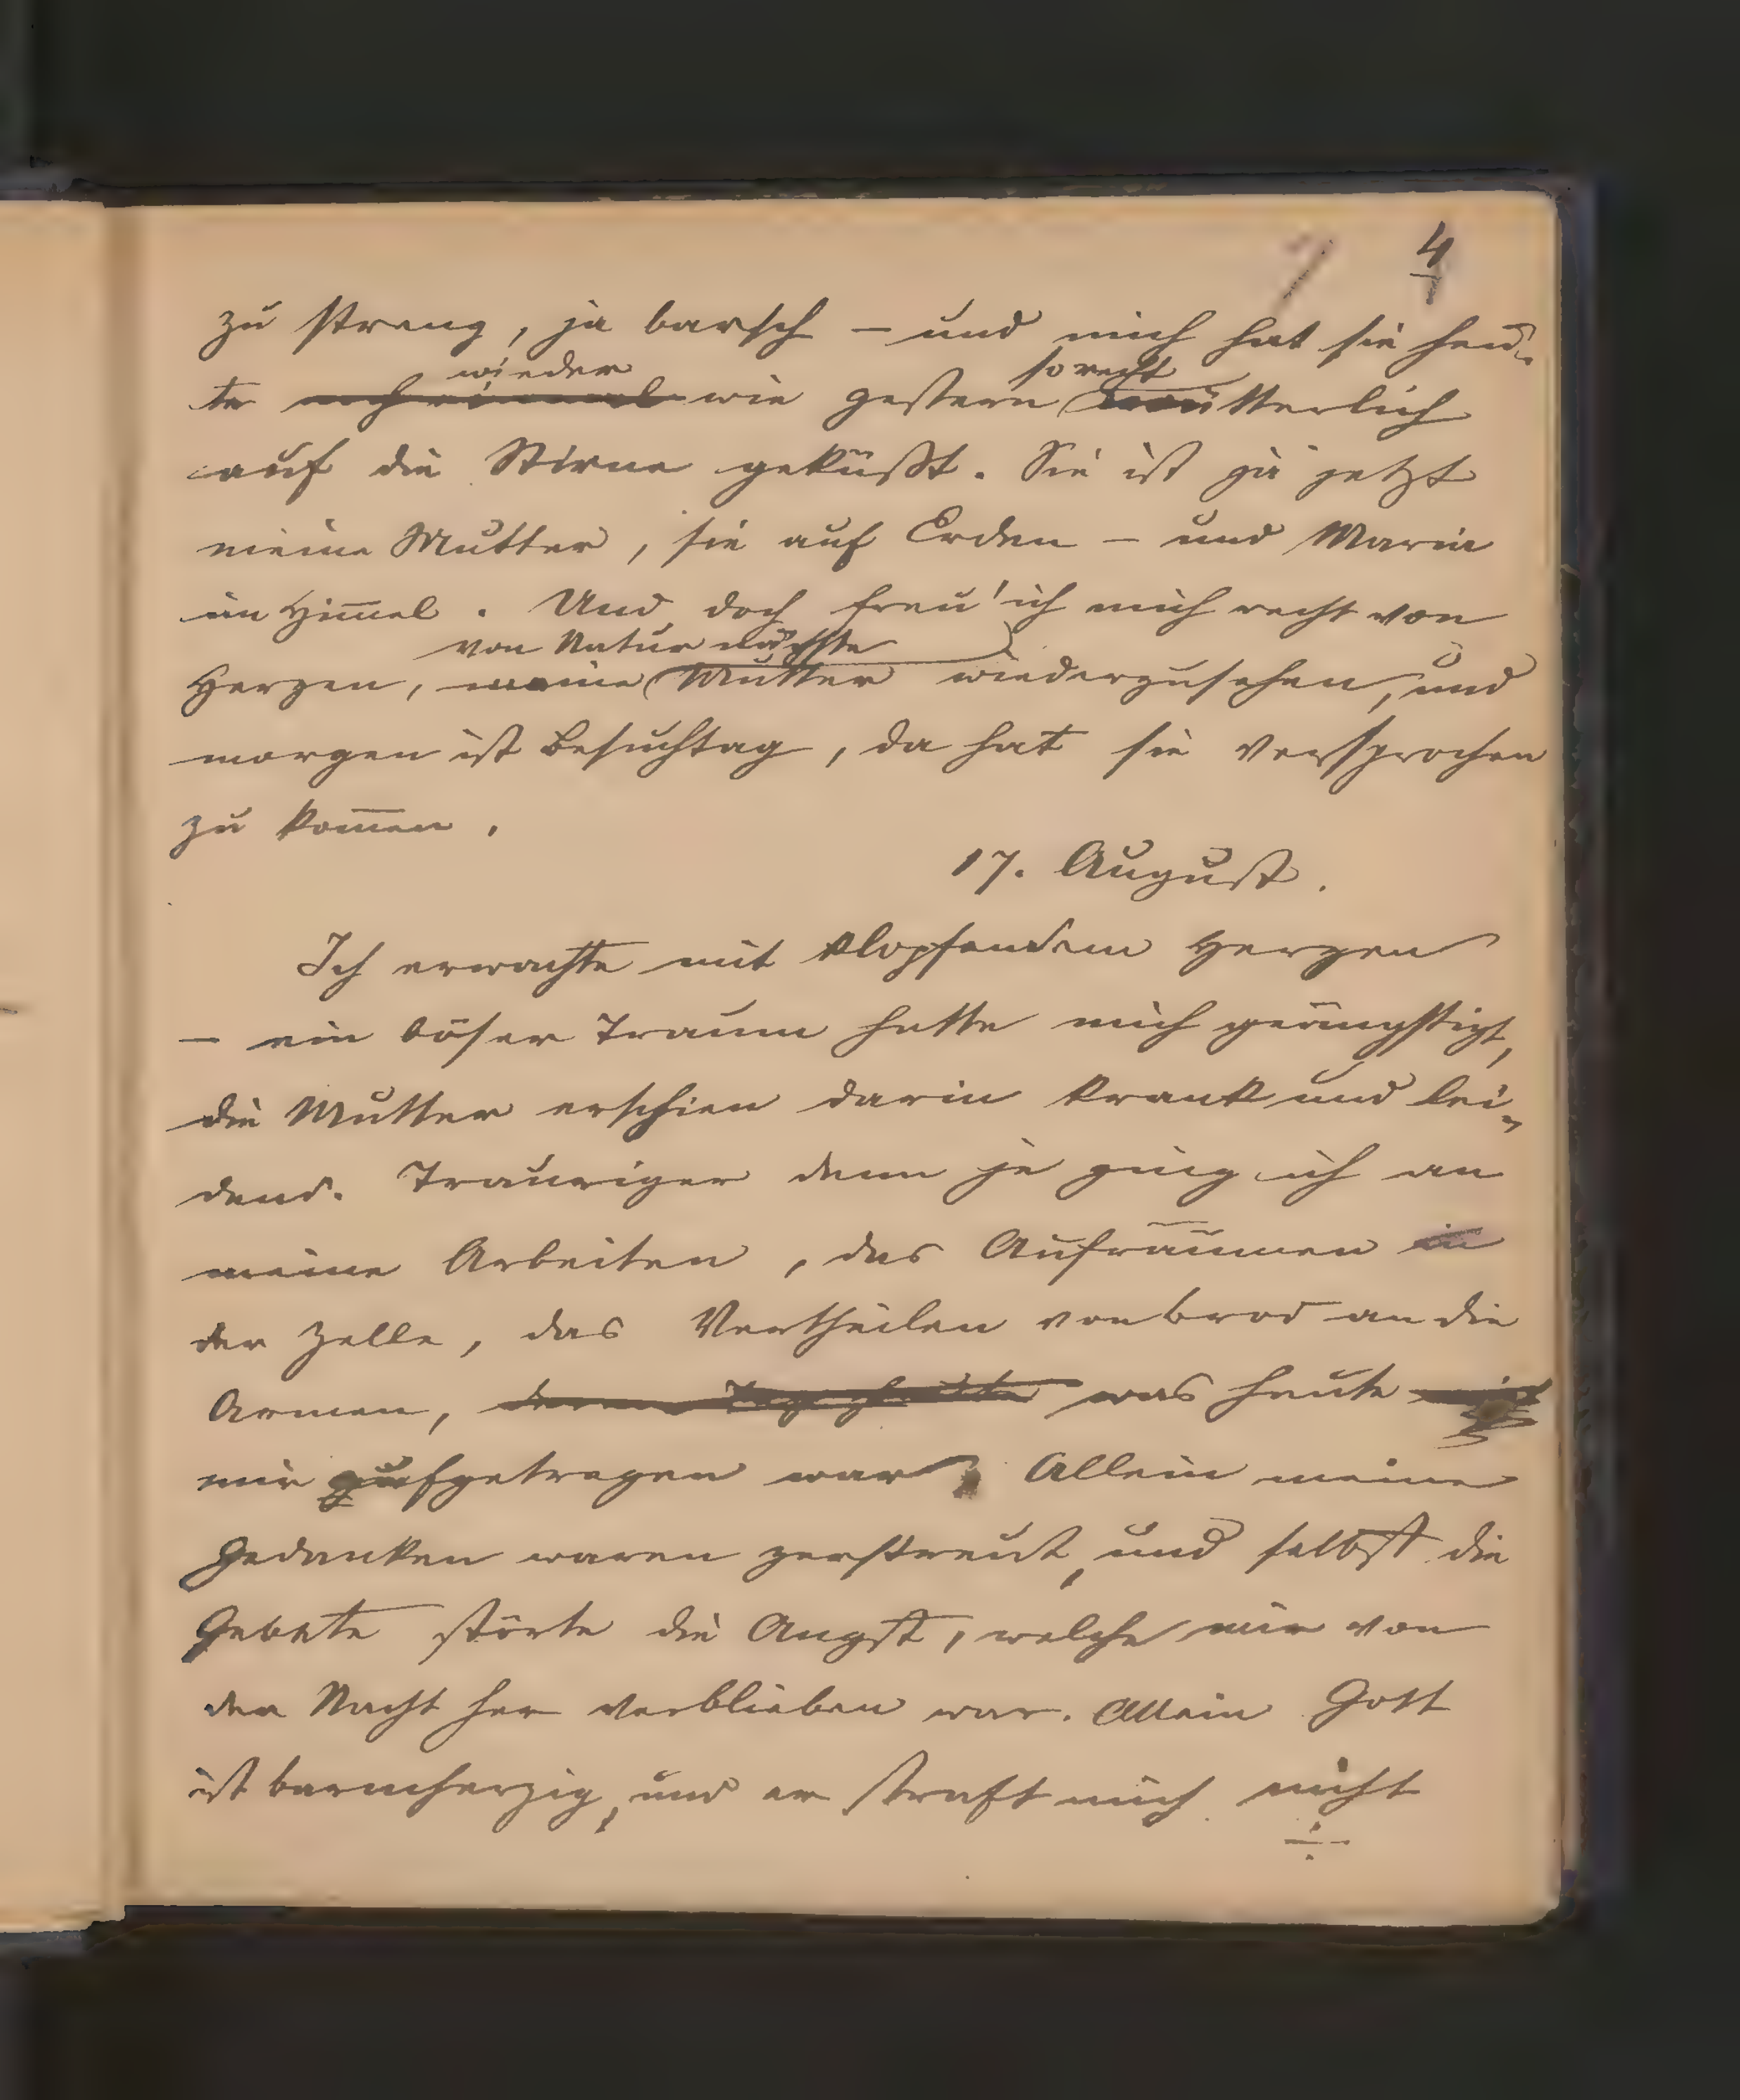 4
zu streng, ja barsch – und mich hat sie heu-
wieder so recht
te noch einmal wie gestern mütterlich
auf die Stirne geküßt. Sie ist ja jetzt
meine Mutter, sie auf Erden – und Maria
im Him̄el. Und doch freu' ich mich recht von
von Natur nächste
Herzen, meine Mutter wiederzusehen, und
morgen ist Besuchtag, da hat sie versprochen
zu kom̄en.
17. August.
Ich erwachte mit klopfendem Herzen
– ein böser Traum hatte mich geängstigt,
die Mutter erschien darin krank und lei-
dend. Trauriger denn je ging ich an
meine Arbeiten, das Aufräumen in
der Zelle, das Vertheilen von Brod an die
Armen, was heute
mir aufgetragen war. Allein meine
Gedanken waren zerstreut, und selbst die
Gebete störte die Angst, welche mir von
der Nacht her verblieben war. Allein Gott
ist barmherzig, und er straft mich nicht